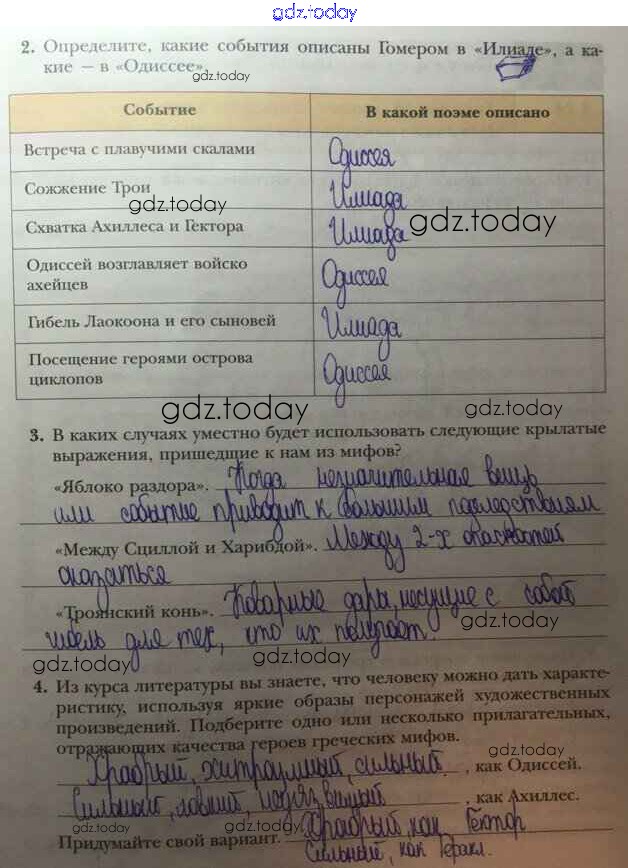 gdz.today
2. Определите, какие события описаны Гомером в «Илиаде», а ка-
кие — в «Одиссее».
gdz.today
Событие В какой поэме описано
Встреча с плавучими скалами Одиссея
Сожжение Трои Илиада
gdz.today
Схватка Ахиллеса и Гектора Илиада
gdz.today
Одиссей возглавляет войско
ахейцев Одиссея
Гибель Лаокоона и его сыновей Илиада
Посещение героями острова
циклопов Одиссея
gdz.today gdz.today
3. В каких случаях уместно будет использовать следующие крылатые
выражения, пришедшие к нам из мифов?
«Яблоко раздора». Когда незначительная вещь
или событие приводит к большим последствиям
gdz.today gdz.today
«Между Сциллой и Харибдой». Между 2-х опасностей
оказаться
«Троянский конь». Коварные дары, несущие с собой
гибель для тех, кто их получает.
gdz.today gdz.today gdz.today
4. Из курса литературы вы знаете, что человеку можно дать характе-
ристику, используя яркие образы персонажей художественных
произведений. Подберите одно или несколько прилагательных,
отражающих качества героев греческих мифов.
gdz.today
Храбрый, хитроумный, сильный, как Одиссей.
Сильный, ловкий, неуязвимый, как Ахиллес.
gdz.today gdz.today gdz.today
Придумайте свой вариант. Храбрый, как Гектор
Сильный, как Геракл.